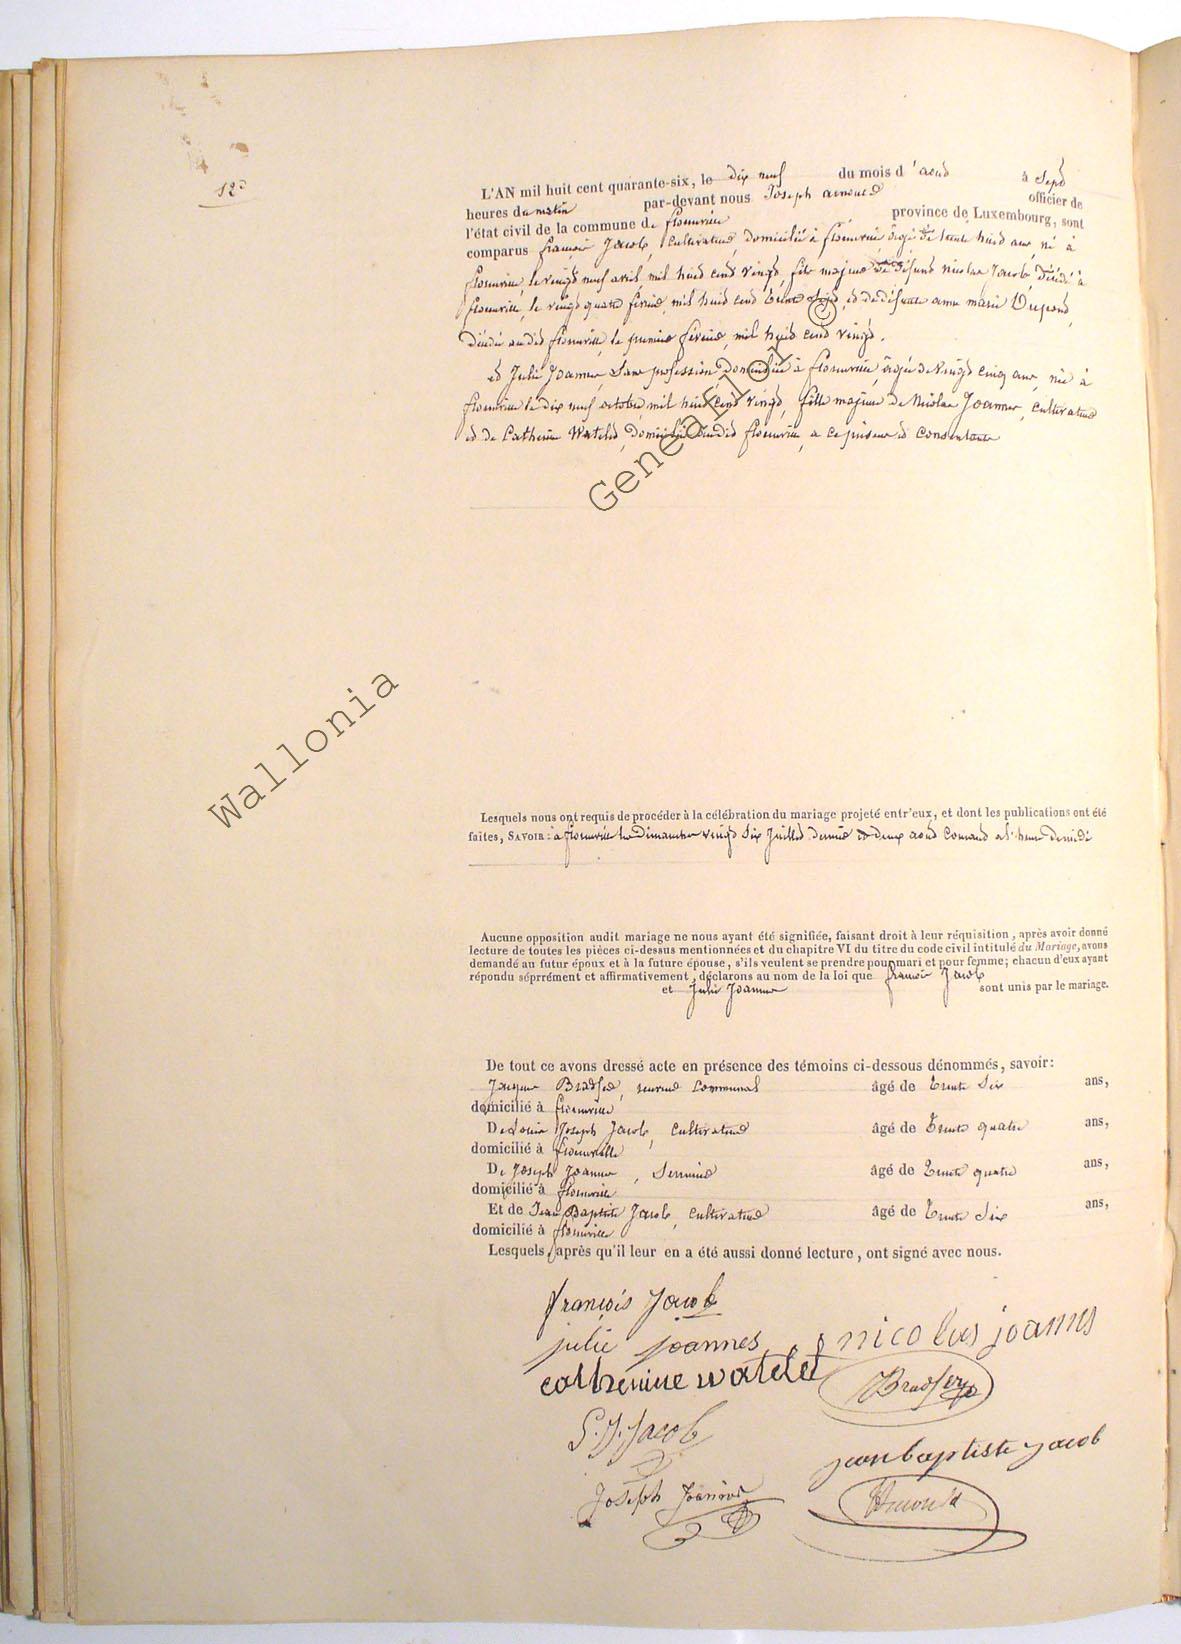 12
L'AN mil huit cent quarante-six, le dix neuf du mois d'aout à sept
heures du matin par-devant nous Joseph arnould officier de
l'état civil de la commune de florenville province de Luxembourg, sont
comparus françois Jacob, cultivateur, domicilié à florenville âgé de trente huit ans, né à
florenville, le vingt neuf avril, mil huit cent, fils majeur de défunt nicolas Jacob, Décédé à
florenville, le vingt quatre février, mil huit cent trente, et de defunte anne marie Dupont,
décédée audit florenville, le premier février, mil huit cent vingt.
et Julie Joannes, sans profession, domiciliée à florenville, âgée de vingt cinq ans, née à
florenville le dix neuf octobre, mil huit cent vingt, fille majeure de Nicolas Joannes, cultivateur
et de Catherine Watelet, domiciliés audit florenville, a ce présens et consentants
Lesquels nous ont requis de procéder à la célébration du mariage projeté entr'eux, et dont les publications ont été
faites, SAVOIR: à florenville les Dimanches vingt six juillet dernier et deux aout courant à l'heure de midi
Aucune opposition audit mariage ne nous ayant été signifiée, faisant droit à leur réquisition, après avoir donné
lecture de toutes les pièces ci-dessus mentionnées et du chapitre VI du titre du code civil intitulé du Mariage, avons
demandé au futur époux et à la future épouse, s'ils veulent se prendre pour mari et pour femme; chacun d'eux ayant
répondu séprément et affirmativement, déclarons au nom de la loi que françois Jacob
et Julie Joannes sont unis par le mariage.
De tout ce avons dressé acte en présence des témoins ci-dessous dénommés, savoir:
Jacques Bradfer, receveur communal âgé de trente six ans,
domicilié à florenville
De Louis Joseph Jacob, cultivateur âgé de trente quatre ans,
domicilié à florenville
De Joseph Joannes, âgé de trente quatre ans,
domicilié à florenville
Et de Jean Baptiste Jacob, cultivateur âgé de trente six ans,
domicilié à florenville
Lesquels, après qu'il leur en a été aussi donné lecture, ont signé avec nous.
françois Jacob
julie joannes nicolas joannes
catherinne watelet Bradfer
L. J. Jacob
jean baptiste jacob
Joseph Joannes Arnould
Wallonia
GeneaFlor ©